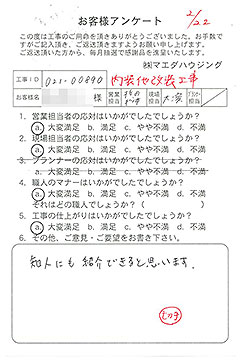 お客様アンケート
2/22
この度は工事のご用命を頂きありがとうございました。お手数で
すがご記入頂き、ご返送頂きますようお願い申し上げます。
ご返送頂いた方から、毎月抽選で感謝品を進呈いたします。
㈱マエダハウジング
工事ID 021-00890 内装他改装工事
お客様名 様 営業担当 現場担当 大濱
1. 営業担当者の応対はいかがでしたでしょうか?
a. 大変満足 b. 満足 c. やや不満 d. 不満
2. 現場担当者の応対はいかがでしたでしょうか?
a. 大変満足 b. 満足 c. やや不満 d. 不満
3. プランナーの応対はいかがでしたでしょうか?
a. 大変満足 b. 満足 c. やや不満 d. 不満
4. 職人のマナーはいかがでしたでしょうか?
a. 大変満足 b. 満足 c. やや不満 d. 不満
それはどの職人でしょうか?( )
5. 工事の仕上がりはいかがでしたでしょうか?
a. 大変満足 b. 満足 c. やや不満 d. 不満
6. その他、ご意見・ご要望をお書き下さい。
知人にも紹介できると思います。